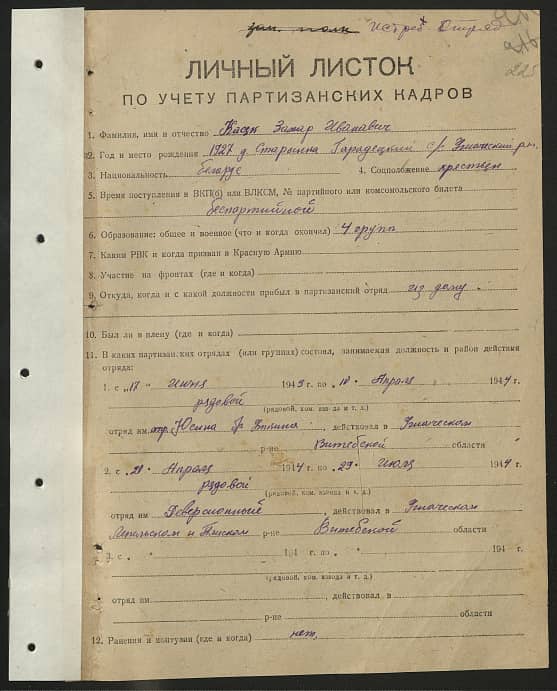 зап. полк Истреб. Отряд
225
ЛИЧНЫЙ ЛИСТОК
ПО УЧЕТУ ПАРТИЗАНСКИХ КАДРОВ
1. Фамилия, имя и отчество Касцк Захар Иванавич
2. Год и место рождения 1927 д. Старына Гарадецкий с/с Ушачский р-н.
3. Национальность беларус 4. Соцположение крестьен
5. Время поступления в ВКП(б) или ВЛКСМ, № партийного или комсомольского билета
беспартийной
6. Образование: общее и военное (что и когда окончил) 4 групы
7. Каким РВК и когда призван в Красную Армию
8. Участие на фронтах (где и когда)
9. Откуда, когда и с какой должности прибыл в партизанский отряд из дому
10. Был ли в плену (где и когда)
11. В каких партизанских отрядах (или группах) состоял, занимаемая должность и район действия
отряда:
1. с „17" июля 1943 г. по „10" Апреля 1944 г.
рядовой
(рядовой, ком. взвода и т. д.)
отряд им. Юсина бр. Тяпина, действовал в Ушачском
р-не Витебской области
2. с „21" Апреля 1944 г. по „29" июля 1944 г.
рядовой
(рядовой, ком. взвода и т. д.)
отряд им Деверсионный, действовал в Ушачском
Лепельском и р-не Витебской области
3. с „ " 194 г. по „ " 194 г.
(рядовой, ком. взвода и т. д.)
отряд им , действовал в
р-не области
12. Ранения и контузии (где и когда) нет,